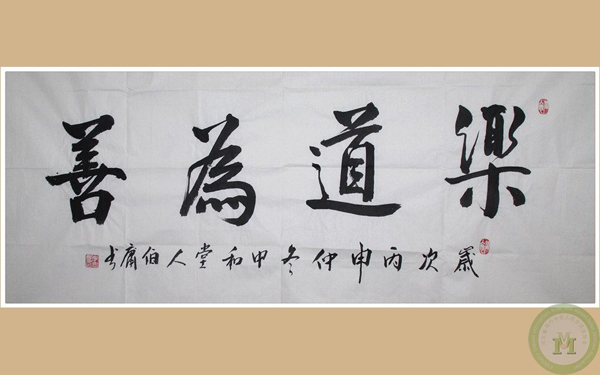 樂道為善
歲次丙申仲冬甲和堂人伯庸书